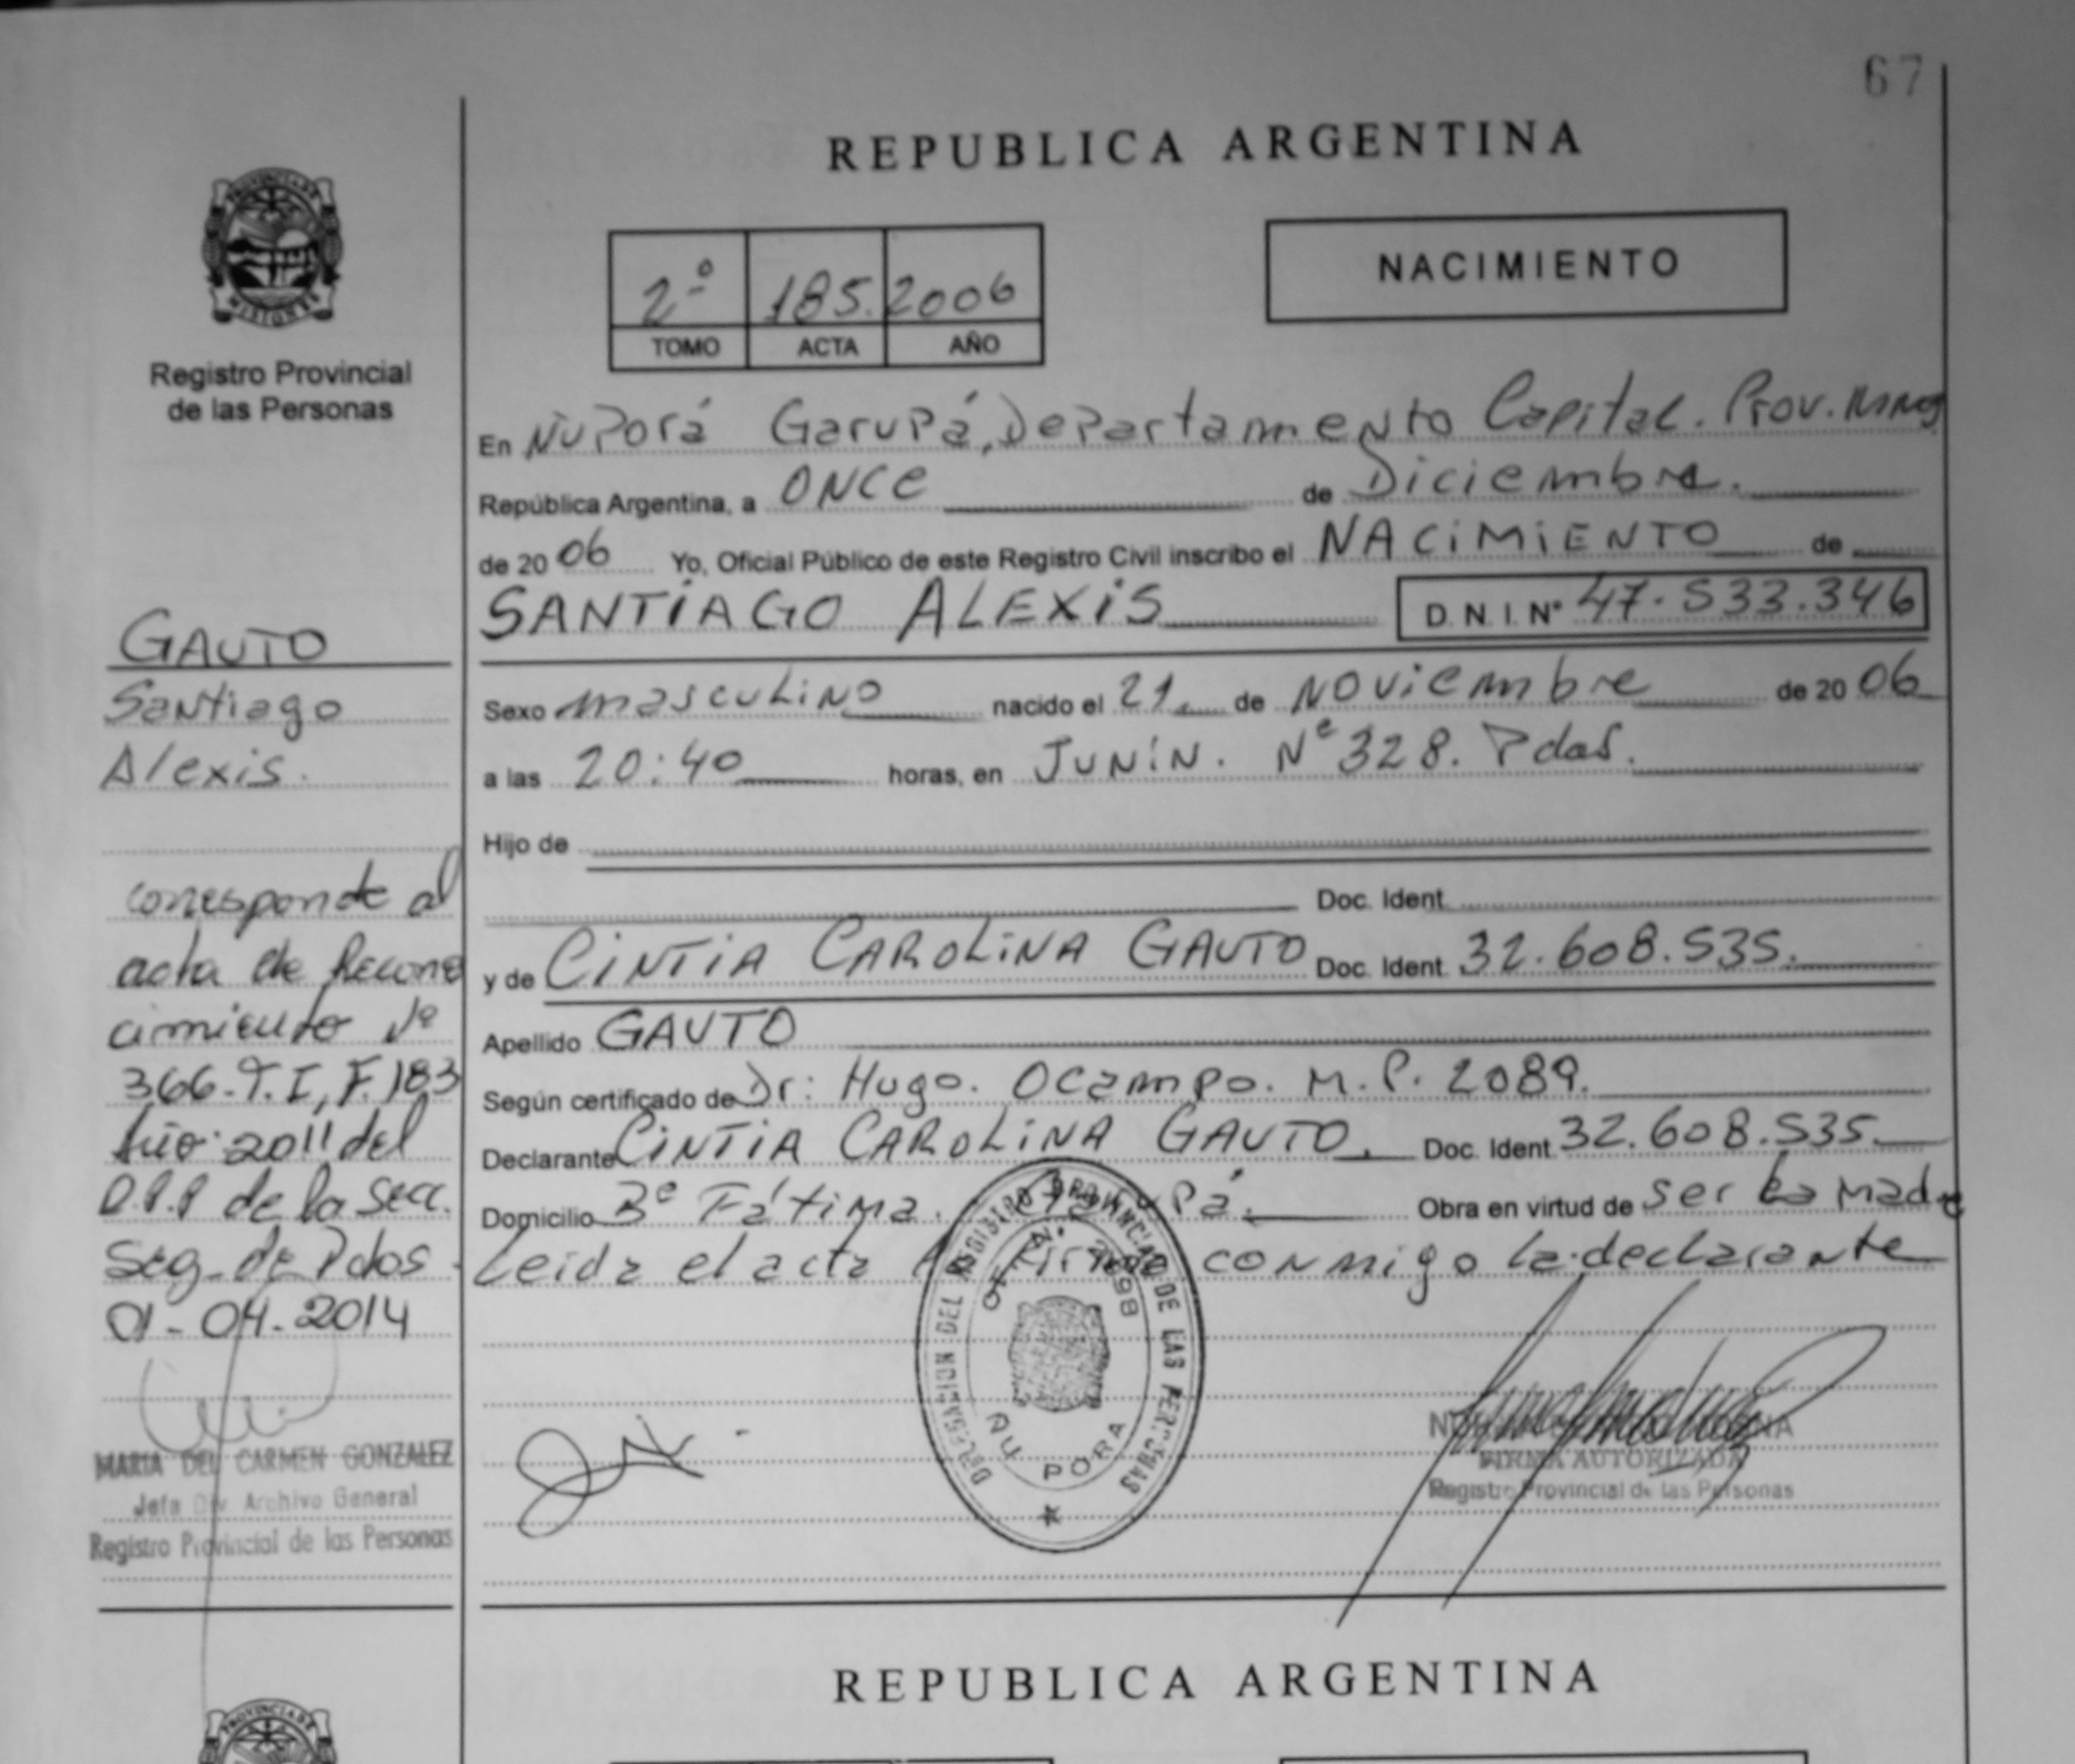 67
REPUBLICA ARGENTINA
PROVINCIA DE
MISIONES
Registro Provincial
de las Personas
2º 185. 2006
TOMO ACTA AÑO
NACIMIENTO
En ÑuPorá Garupá, Departamento Capital. Prov. Mnes
República Argentina, a ONCE de Diciembre.
de 20 06 Yo, Oficial Público de este Registro Civil inscribo el NACiMiENTO de
SANTiAGO ALEXiS D.N.I.Nº 47.533.346
Sexo masculino nacido el 21 de Noviembre de 20 06
a las 20:40 horas, en Junín. Nº 328. Pdas.
Hijo de
Doc. Ident.
y de CiNTiA CAROLiNA GAUTO Doc. Ident. 32.608.535.
Apellido GAUTO
Según certificado de Dr: Hugo. Ocampo. M.P. 2089.
Declarante CiNTiA CAROLiNA GAUTO. Doc. Ident. 32.608.535.
Domicilio Bº Fátima. Garupá. Obra en virtud de ser la madre
Leida el acta firma conmigo la declarante
GAUTO
Santiago
Alexis.
corresponde al
acta de Recono
cimiento Nº
366-T.I, F.183
Año: 2011 del
D.P.P de la Secc.
Seg. de Pdas.
01-04-2014
MARIA DEL CARMEN GONZALEZ
Jefa Div Archivo General
Registro Provincial de las Personas
DELEGACION DEL REGISTRO PROVINCIAL DE LAS PERSONAS
ÑU PORA
FIRMA AUTORIZADA
Registro Provincial de las Personas
REPUBLICA ARGENTINA
PROVINCIA DE